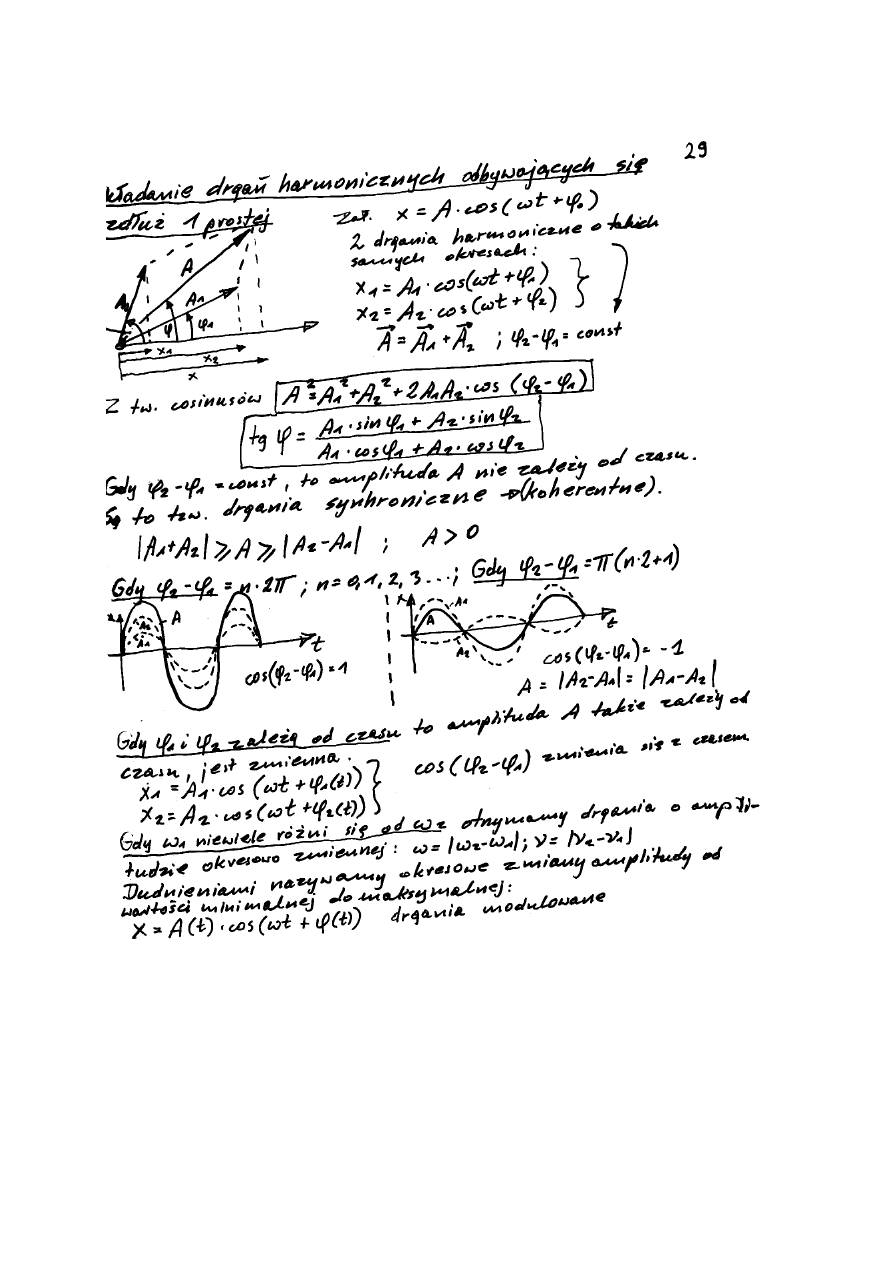 29
kładanie drgań harmonicznych odbywających się
zdłuż 1 prostej
Zał. x = A·cos(ωt+φ₀)
2 drgania harmoniczne o takich
samych okresach:
x₁ = A₁·cos(ωt+φ₁)
x₂ = A₂·cos(ωt+φ₂)
A⃗ = A⃗₁ + A⃗₂ ; φ₂-φ₁ = const
A
A₁
φ φ₁
x₁
x₂
x
Z tw. cosinusów A² = A₁² + A₂² + 2A₁A₂·cos (φ₂-φ₁)
tg φ = (A₁·sinφ₁ + A₂·sinφ₂) / (A₁·cosφ₁ + A₂·cosφ₂)
Gdy φ₂-φ₁ = const, to amplituda A nie zależy od czasu.
Są to tzw. drgania synhroniczne → (koherentne).
|A₁+A₂| ⩾ A ⩾ |A₂-A₁| ; A > 0
Gdy φ₂-φ₁ = n·2π ; n = 0, 1, 2, 3 ...; Gdy φ₂-φ₁ = π(n·2+1)
x A A₂ A₁ t
cos(φ₂-φ₁) = 1
x A₁ A A₂ t
cos(φ₂-φ₁) = -1
A = |A₂-A₁| = |A₁-A₂|
Gdy φ₁ i φ₂ zależą od czasu to amplituda A także zależy od
czasu, jest zmienna.
cos(φ₂-φ₁) zmienia się z czasem
x₁ = A₁·cos (ωt+φ₁(t))
x₂ = A₂·cos(ωt+φ₂(t))
Gdy ω₁ niewiele różni się od ω₂ otrzymamy drgania o ampli-
tudzie okresowo zmiennej: ω = |ω₂-ω₁|; ν = |ν₂-ν₁|
Dudnieniami nazywamy okresowe zmiany amplitudy od
wartości minimalnej do maksymalnej:
x = A(t)·cos(ωt + φ(t)) drgania modulowane